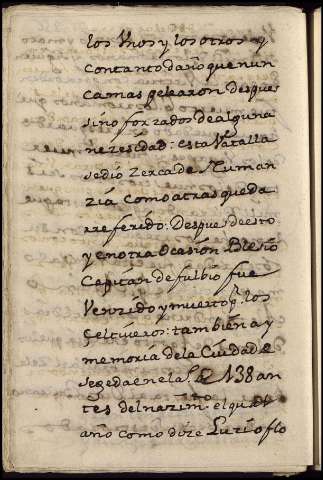 los Vnos y los otros y
contanto daño que nun
ca mas pelearon despues
sino forzados de alguna
nezesidad: esta Vatalla
sedio Zerca de Numan
zia como atras queda
rreferido: Despues de esto
y en otra ocasion Blesio
Capitan de fulbio fue
Venzido y muerto q. los
Çeltiueros: tambien ay
memoria de la Ciudad de
segeda en el a.º de 138 an
tes del nazim.to el qual
año como dize Luzio flo